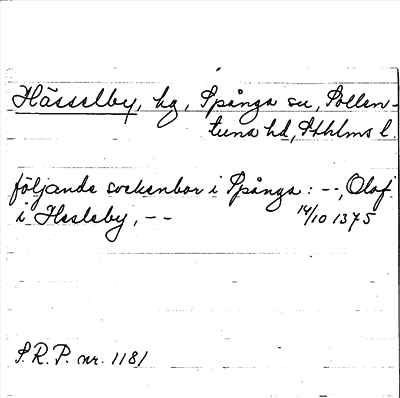 Hässelby, hg, Spånga sn, Sollen-
tuna hd, Sthlms l.
följande sockenbor i Spånga: --, Olof
i Hesleby, -- 14/10 1375
S.R.P. nr. 1181